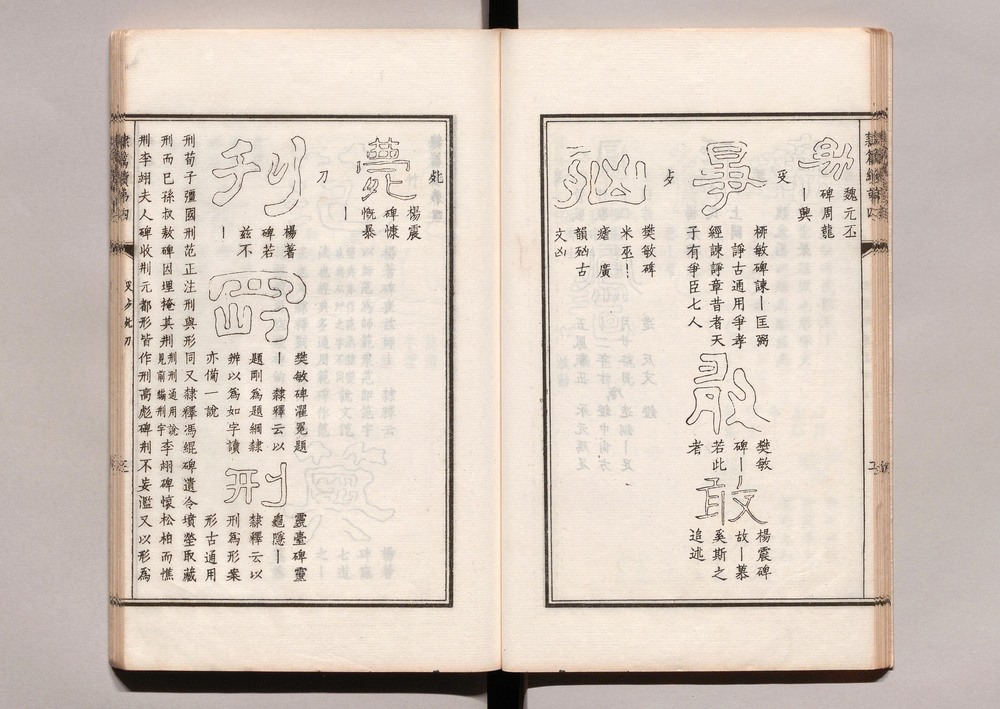 魏元丕
碑周龍
｜興
𠬪
桺敏碑諫｜匡弼
諍古通用爭孝
經諫諍章昔者天
子有爭臣七人
樊敏
碑｜
若此
者
敢
楊震碑
故｜慕
奚斯之
追述
歺
樊敏碑
米巫！
瘧 廣
韻㐫古
文凶
死
薨
楊震
碑慷
慨暴
｜
刀
刋
楊著
碑若
兹不
｜
樊敏碑濯冕題
｜隸釋云以
題剛為題綱隸
辨以為如字讀
亦備一說
刑
靈臺碑靈
龜隱｜
隸釋云以
刑為形案
形古通用
刑荀子彊國刑范正注刑與形同又隸釋馮緄碑遺令墳塋取藏
刑而已孫叔敖碑因埋掩其刑
荆刑通用說
見前騙刑字
李翊碑懷松柏而憔
荆李翊夫人碑收荆元都形皆作刑高彪碑刑不妄濫又以形爲